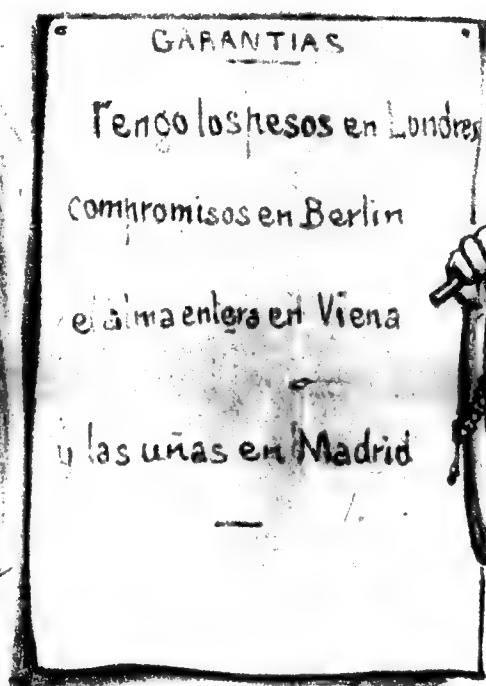 GARANTIAS
Tengo los pesos en Londres
compromisos en Berlin
el alma entera en Viena
y las uñas en Madrid